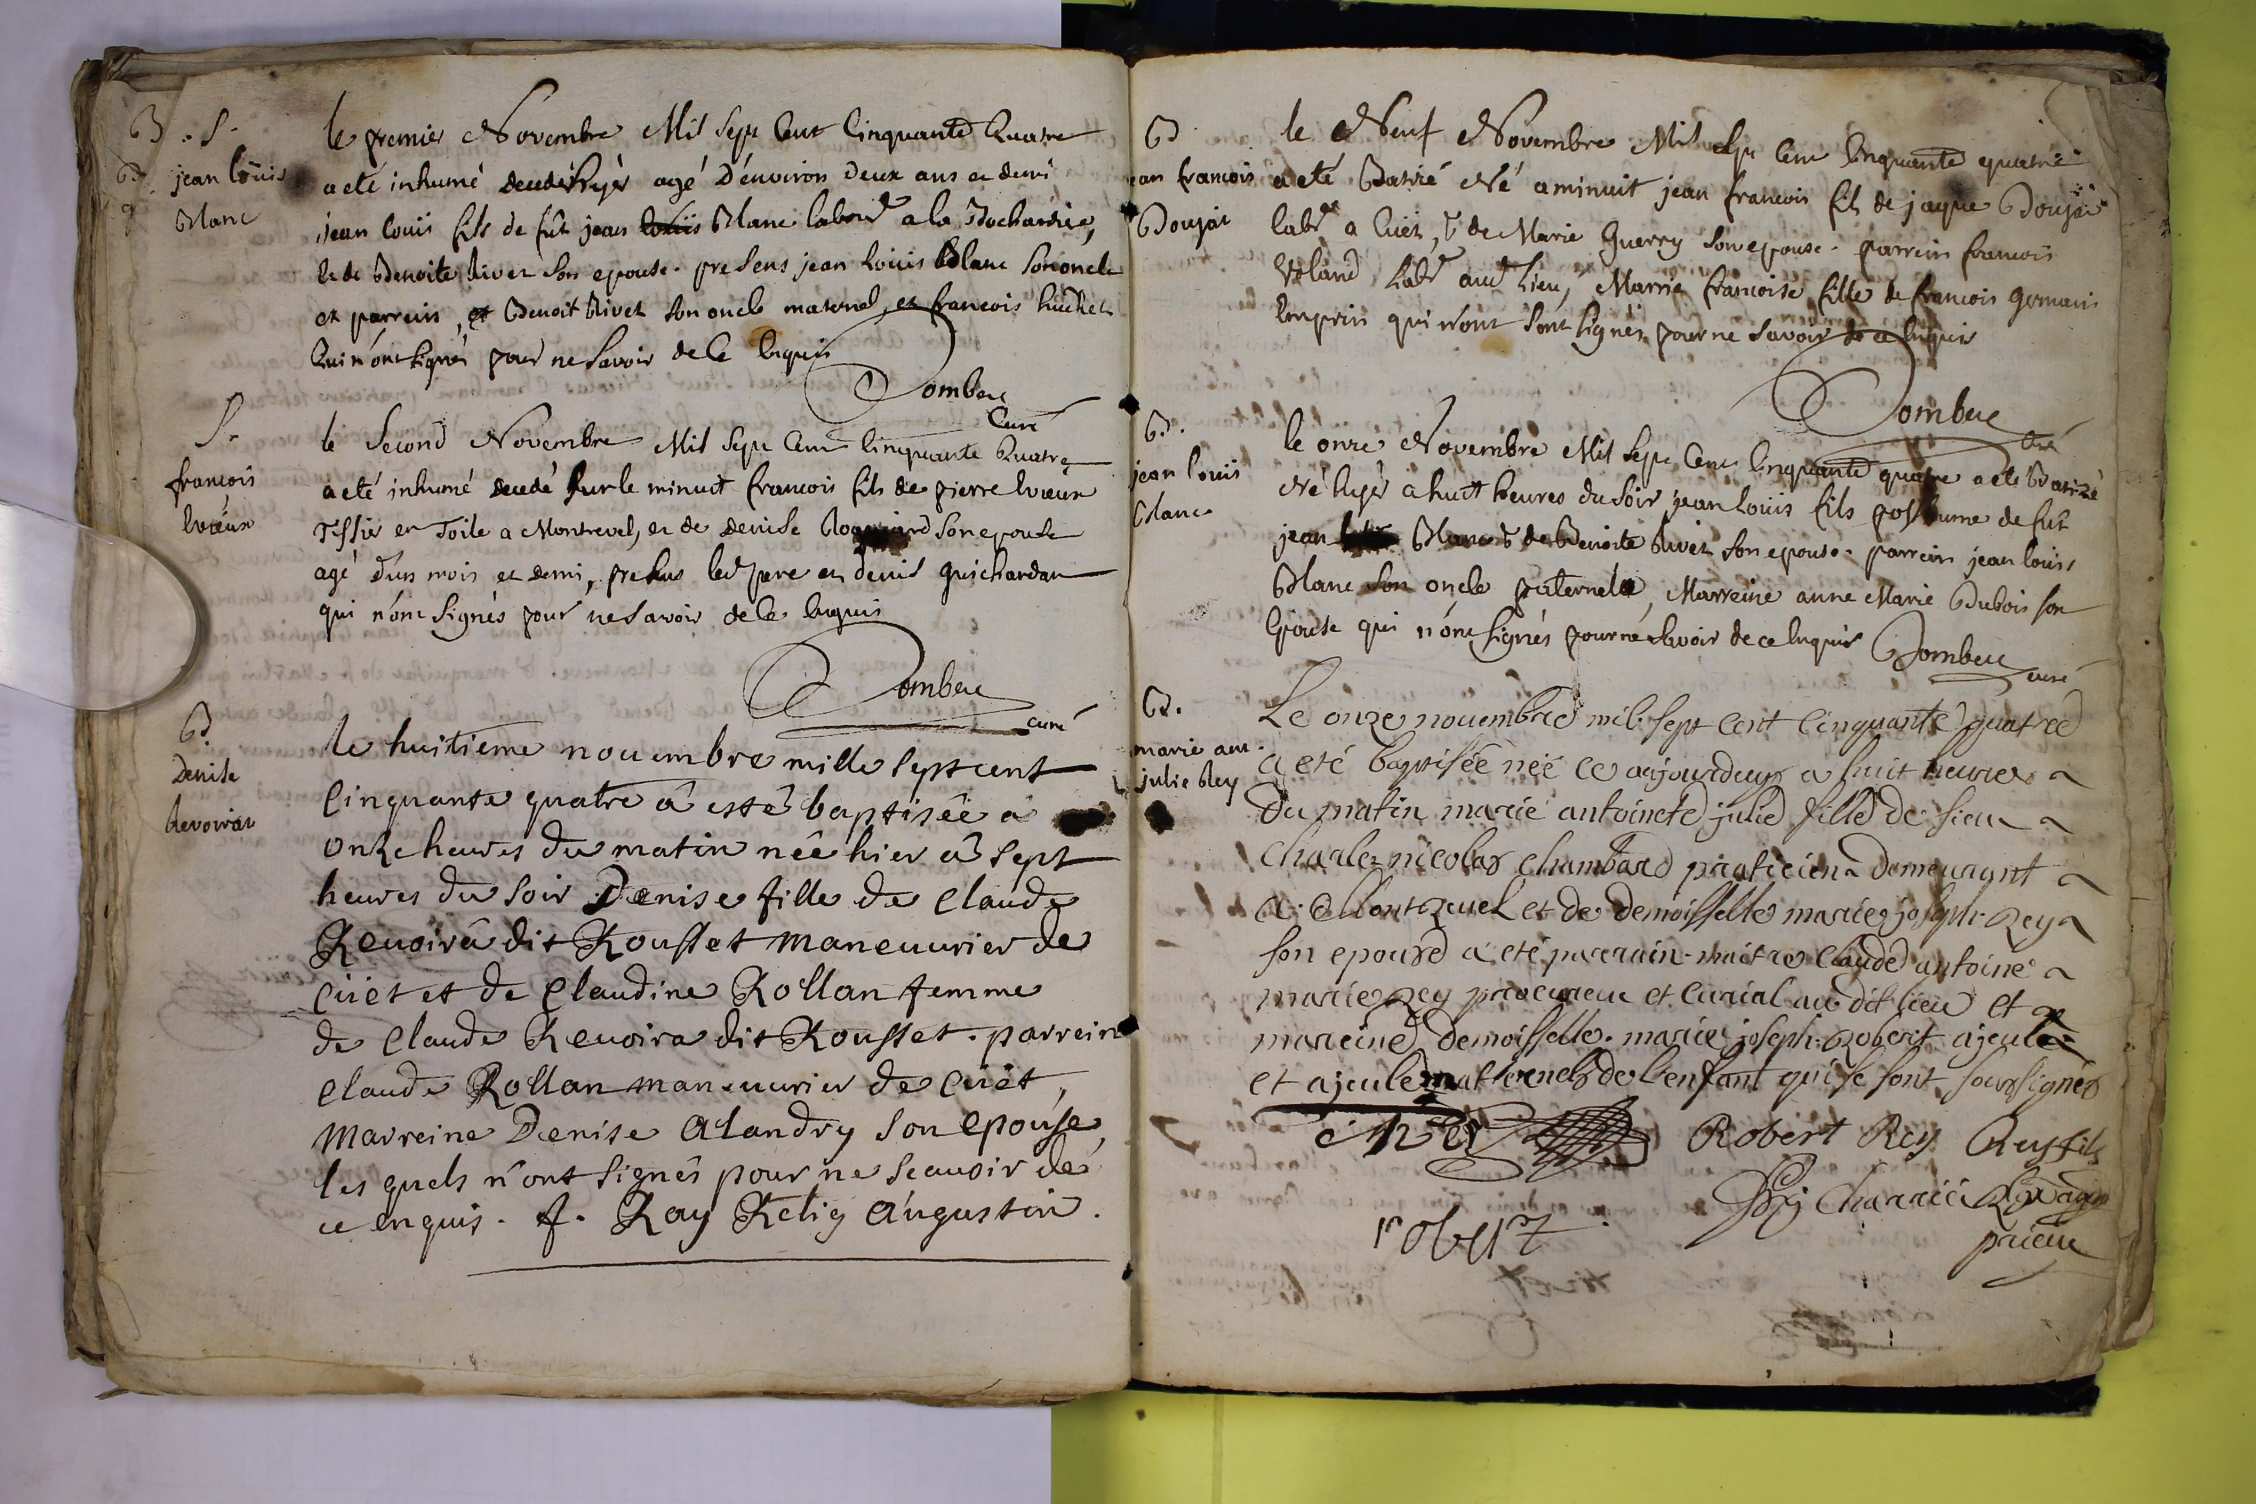 B
B.
9
. S.
jean loüis
Blanc
le premier Novembre Mil sept Cent Cinquante Quatre
a eté inhumé decedé hyer agé D'environ deux ans et demi
jean louis fils de fût jean louis Blanc labour a la
et de Benoite Rivet son epouse. presens jean louis Blanc son oncle
et parrein, et Benoit Rivet son oncle maternel, et francois huchet
Qui n'ont signés pour ne savoir de ce Enquis
Dombeu
Curé
S.
francois
le second Novembre Mil sept Cent Cinquante Quatre
a eté inhumé decedé sur le minuit francois fils de pierre
Tessier en Toile a Montrevel, et de denise son epouse
agé d'un mois et demi, presens led pere et denis guichardan
qui n'ont signés pour ne savoir de ce Enquis
Dombeu
curé
B.
Denise
Revoirat
le huitieme nouembre mille sept cent
Cinquante quatre a esté baptisée a
onze heures du matin née hier a sept
heures du soir Denise fille de Claude
Reuoira dit Rousset maneuurier de
Cüet et de Claudine Rollan femme
de Claude Reuoira dit Rousset. parrein
Claude Rollan maneuurier de Cüet,
Marreine Denise Alandry son Epouse,
les quels n'ont signés pour ne scauoir de
ce enquis. f. Ray Relig Augustin.
B
jean francois
Doujat
le Neuf Novembre Mil sept Cent Cinquante quatre
a eté Batisé Né a minuit jean francois fils de jaque Doujat
labr a Cüet, & de Marie Guerry son epouse. parrein francois
Labr aud Lieu, Marrie francoise fille de francois germain
Emprin qui n'ont sont signés pour ne savoir de ce enquis
Dombeu
curé
B.
jean louis
Blanc
le onze Novembre Mil sept Cent Cinquante quatre a eté Batizé
Né hyer a huit heures du soir jean louis fils posthume de fût
jean Blanc & de Benoite Rivet son epouse. parrein jean louis
Blanc son oncle paternel, Marreine anne Marie Dubois son
Epouse qui n'ont signés pour ne savoir de ce Enquis Dombeu
curé
B.
marie ant
julie Rey
Le onze nouembre mil sept cent Cinquante quatre
a eté baptisée née ce aujourduy a huit heures
du matin marie antoinete julie fille de sieur
Charle nicolas Chambard praticien demeurant
a Montreuel et de demoisselle marie joseph Rey
son epouse a eté parrain maitre Claude antoine
marie Rey procureur et Curial au dit lieu et
mareine demoisselle marie joseph Robert ajeul
et ajeule maternels de l'enfant qui se sont soussignés
Robert Rey Rey fils
robert
prieur